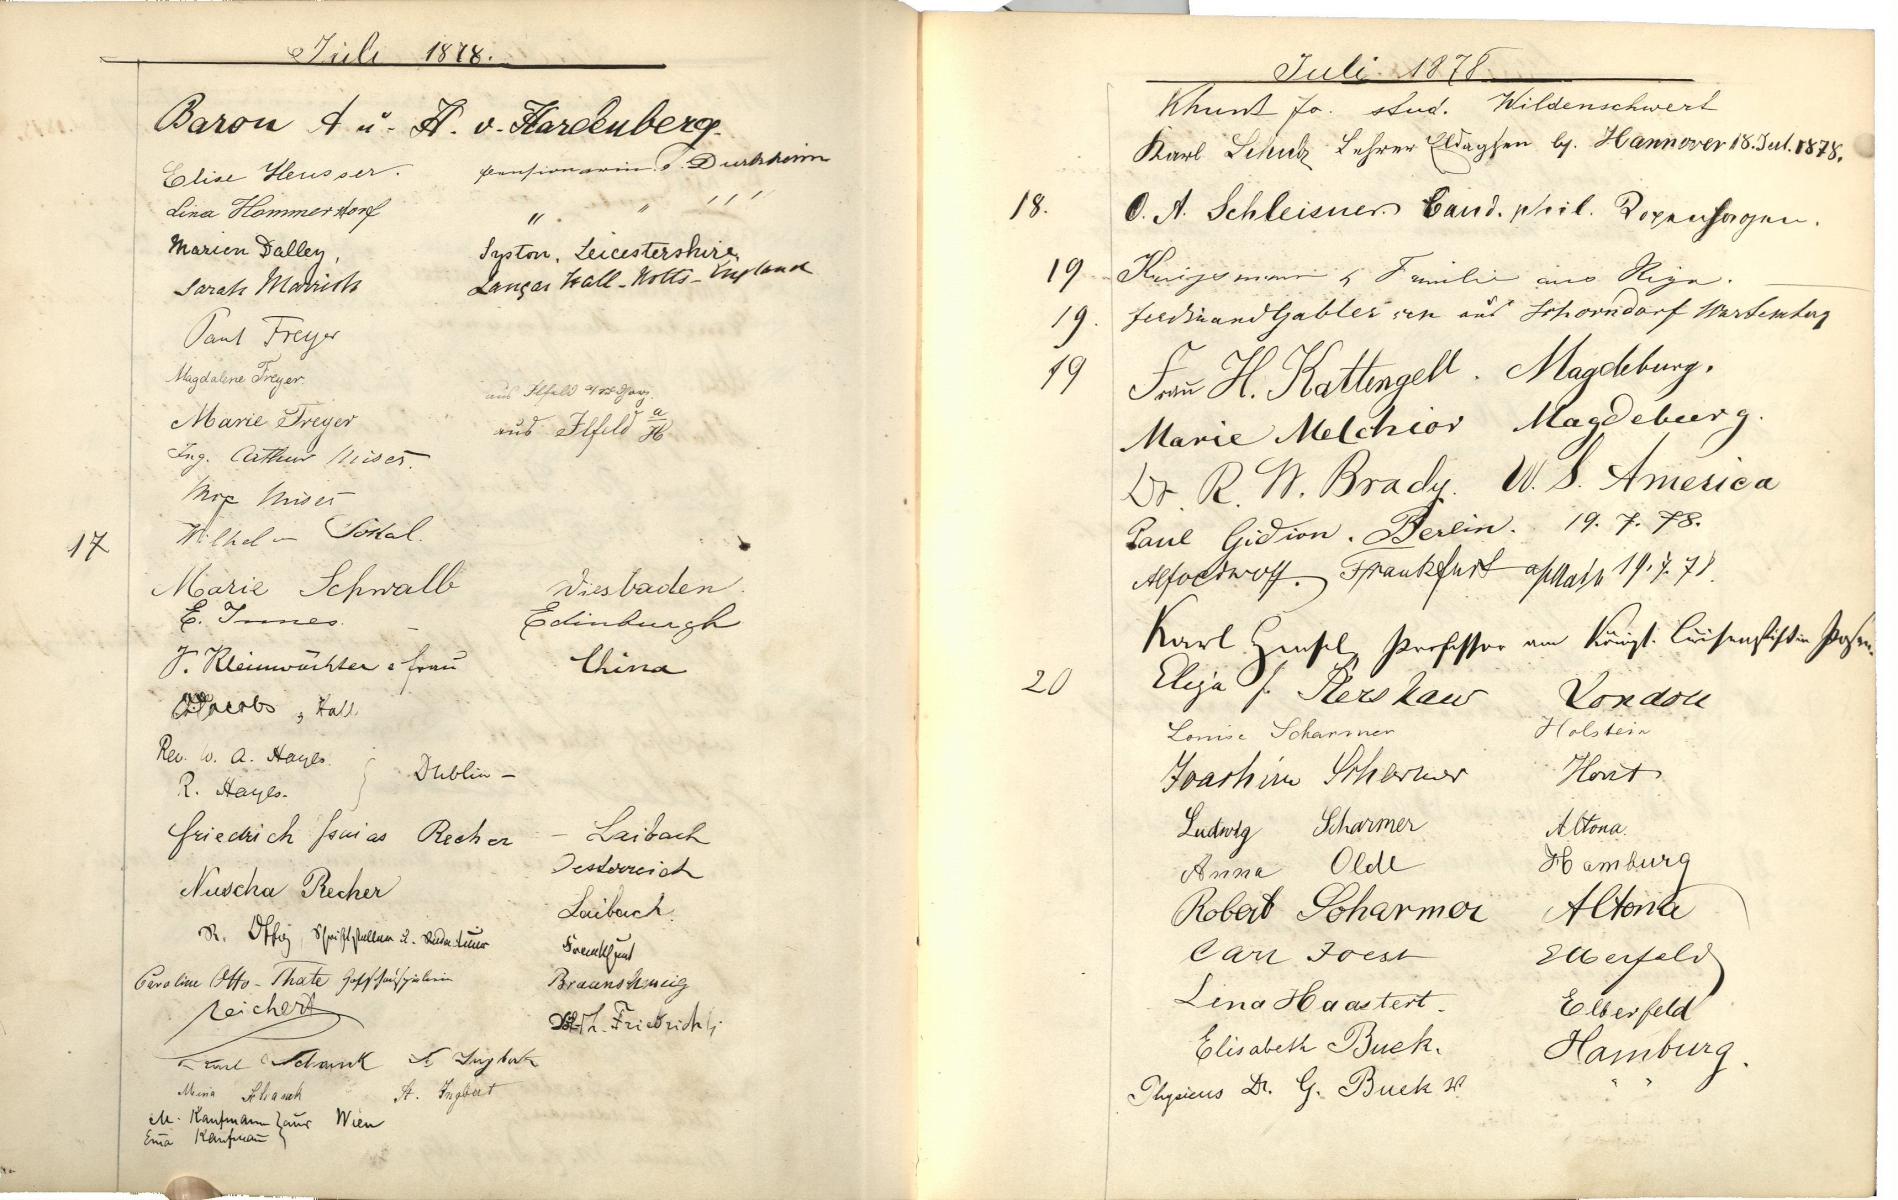 Juli 1878.
Baron A u. H. v. Hardenberg.
Elise Heusser. pensionärin Durkheim
Lina Hammerstorf " " " "
Marien Dalley, Syston, Leicestershire,
Sarah Marriott Langar Hall - Notts - England
Paul Freyer
Magdalene Freyer. aus Ilfeld
Marie Freyer aus Ilfeld a/H
Ing. Arthur Miises.
Miises
17 Wilhelm Sokal.
Marie Schwalb Wiesbaden.
E. Innes. Edinburgh
F. Kleinwächter & Frau China
Jacobs, Hall.
Rev. W. A. Hayes.
R. Hayes. } Dublin -
Friedrich Isaias Recher - Laibach
Oesterreich
Nuscha Recher Laibach.
R. Otto, Schriftsteller u. Redacteur Frankfurt
Caroline Otto-Thate Hofschauspielerin Braunschweig
Reichert Friedrich
Karl Schank St. Ingbert
Mina Schank St. Ingbert
M. Kaufmann } aus Wien
Ema Kaufmann
Juli 1878
Khunt Jo. stud. Wildenschwert
Karl Schulz Lehrer Eldagsen b/. Hannover 18. Jul. 1878.
18. O. A. Schleisner. Cand. phil. Kopenhagen.
19 & Familie aus Riga.
19. Ferdinand Gabler sen aus Schorndorf Wurtemberg
19 Frau H. Kattengell. Magdeburg.
Marie Melchior Magdeburg.
Dr. R. W. Brady. U. S. America
Paul Gidion. Berlin. 19. 7. 78.
Frankfurt a/Main 19. 7. 78.
Karl Hensel, Professor am Königl. Luisenstift in Posen.
20 Eliza J. Kershaw London
Louise Scharmer Holstein
Joachim Scharmer Horst
Ludwig Scharmer Altona.
Anna Olde Hamburg
Robert Scharmer Altona
Carl Joest Elberfeld
Lina Haastert. Elberfeld
Elisabeth Buek. Hamburg.
Physicus Dr. G. Buek " "